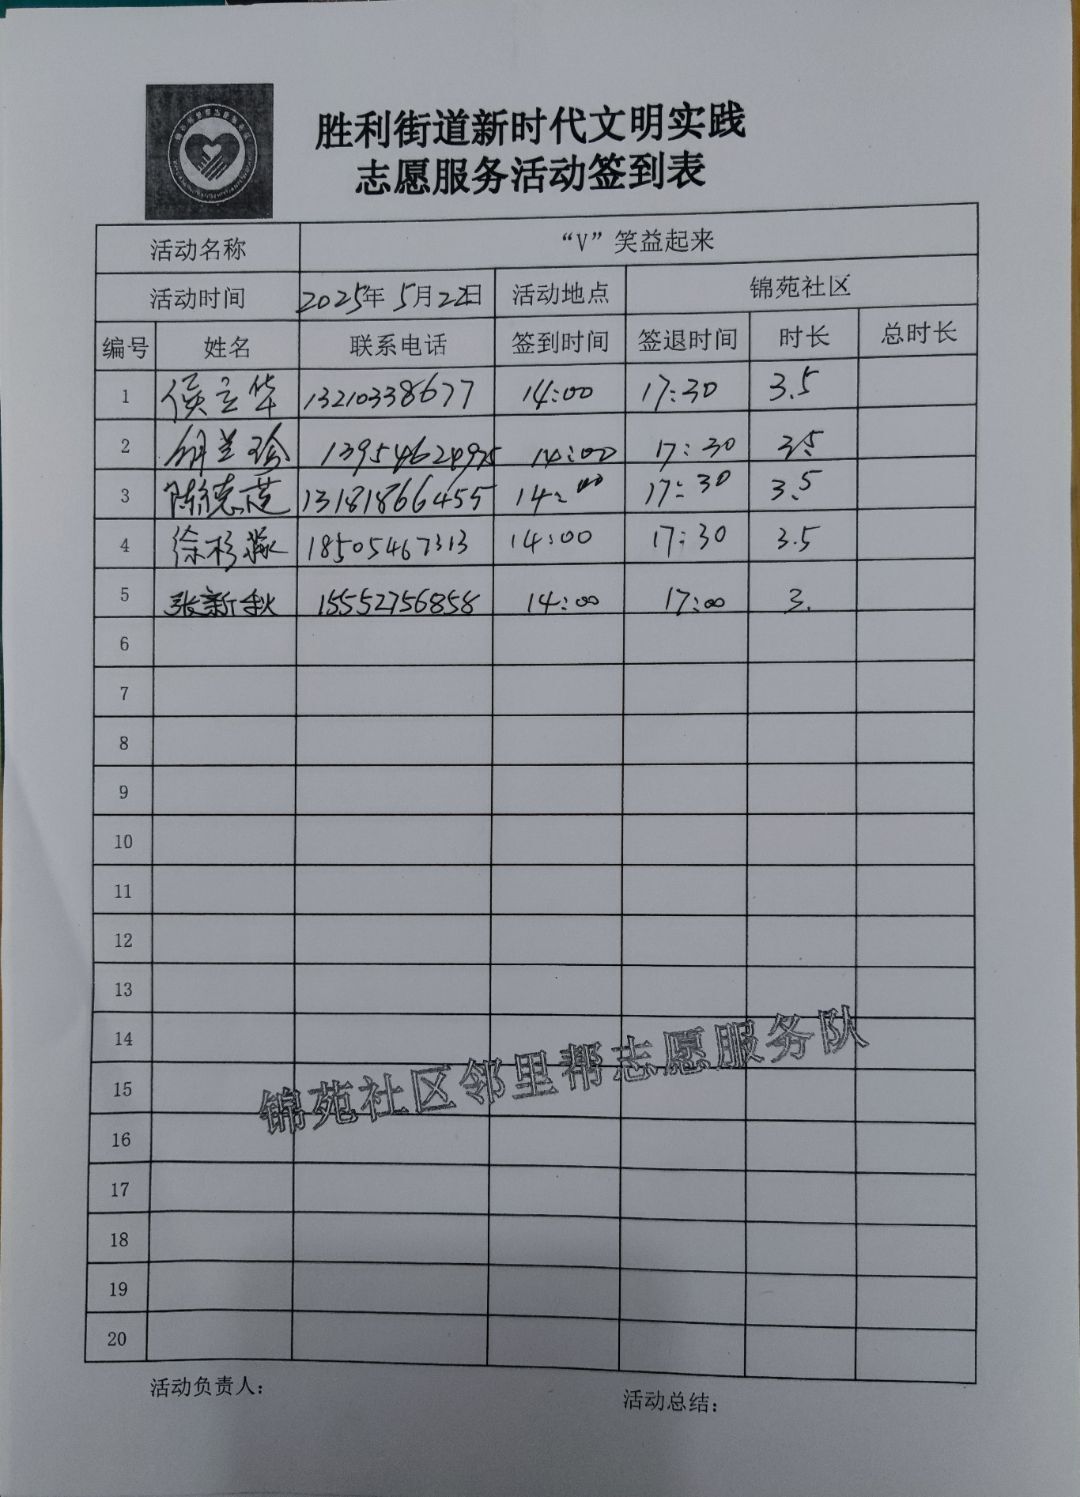 胜利街道新时代文明实践
志愿服务活动签到表
活动名称 “V”笑益起来
活动时间 2025年 5月22日 活动地点 锦苑社区
编号 姓名 联系电话 签到时间 签退时间 时长 总时长
1 侯立华 13210338677 14:00 17:30 3.5
2 兰珍 14:00 17:30 3.5
3 陈德莲 13181866455 14:00 17:30 3.5
4 徐杉 18505467313 14:00 17:30 3.5
5 张新秋 15552756858 14:00 17:00 3.
6
7
8
9
10
11
12
13
14
15
16
17
18
19
20
锦苑社区邻里帮志愿服务队
活动负责人:
活动总结: